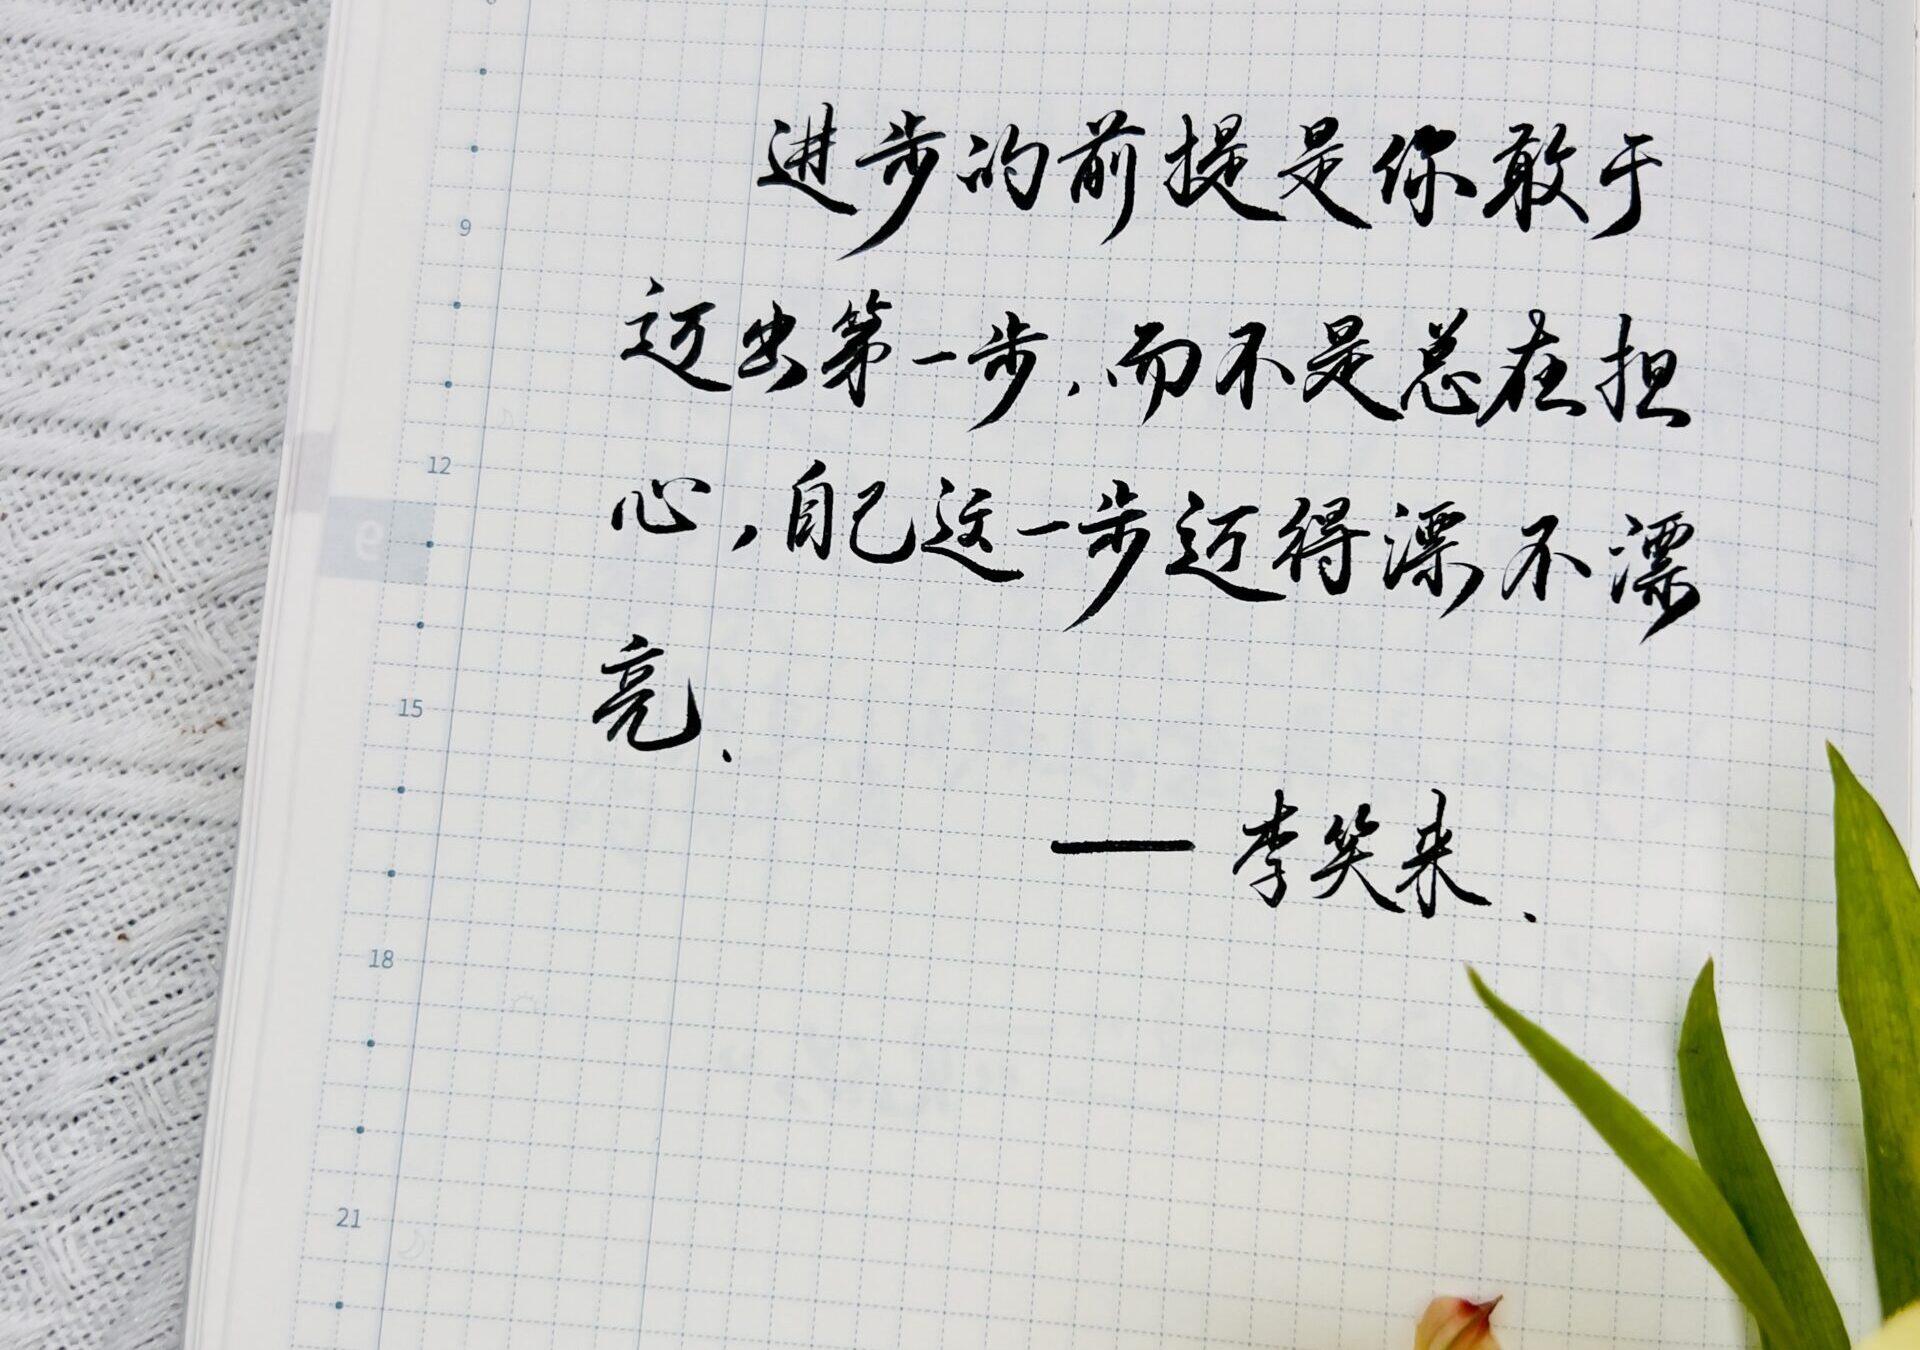 进步的前提是你敢于
迈出第一步，而不是总在担
心，自己这一步迈得漂不漂
亮.
— 李笑来.
9
12
15
18
21